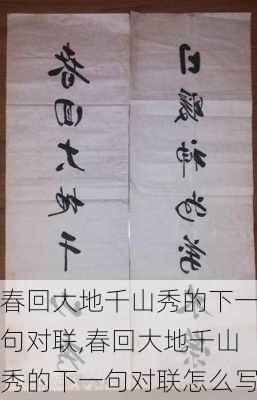 春回大地千山
日暖神州萬
春回大地千山秀的下一
句对联,春回大地千山
秀的下一句对联怎么写